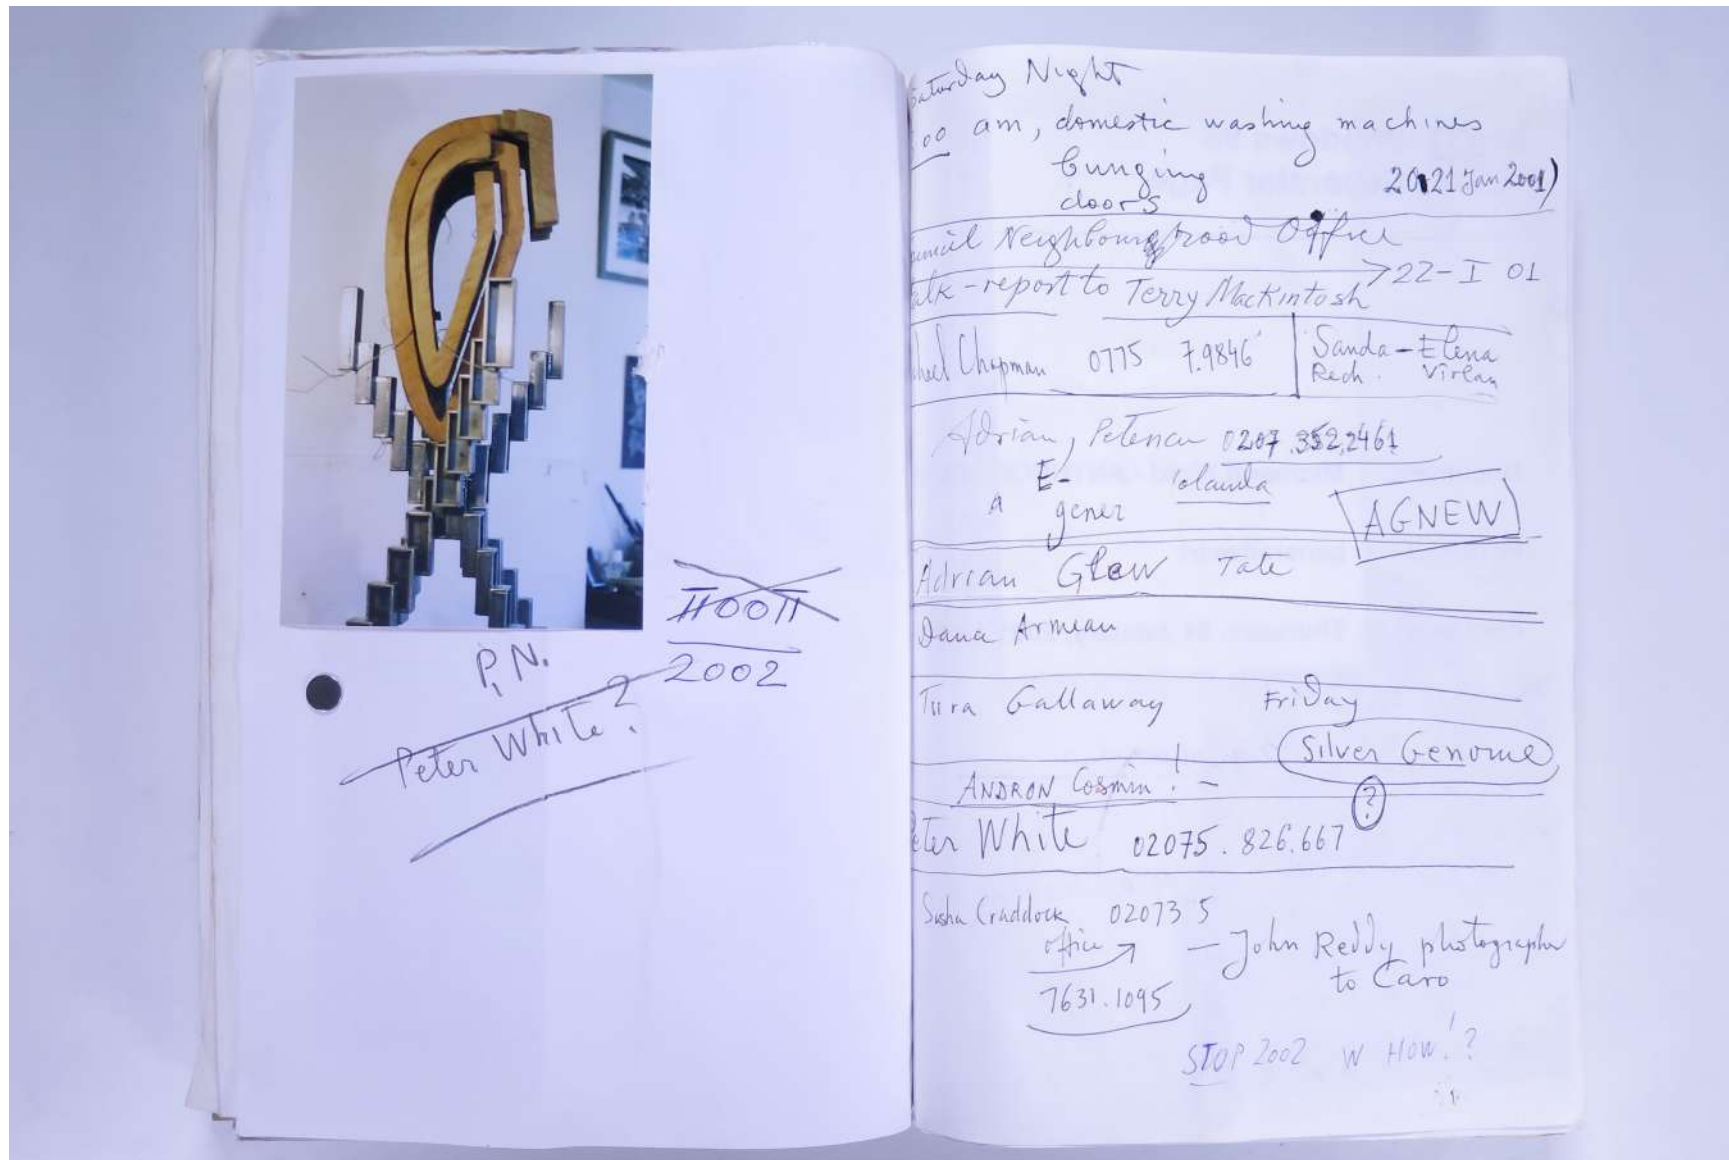 P.N.
Peter White?
2002
Saturday Night
00 am, domestic washing machines
bunging
doors
20.21 Jan 2001)
Neighbourghood Office
22-I 01
-report to Terry Mackintosh
Chapman 0775 7.9846
Sanda-Elena
Virlan
Adrian, 0207.352,2461
E- Iolanda
a gener
AGNEW
Adrian Glew Tate
Dana Armean
Tiira Gallaway Friday
Silver Genome
ANDRON Cosmin! -
?
Peter White 02075.826.667
Sasha Craddock 02073 5
office
7631.1095
- John Reddy photographer
to Caro
STOP 2002 W HOW!?